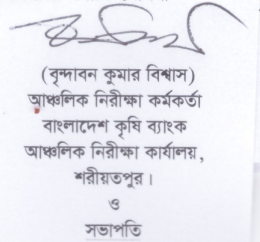 (বৃন্দাবন কুমার বিশ্বাস)
আঞ্চলিক নিরীক্ষা কর্মকর্তা
বাংলাদেশ কৃষি ব্যাংক
আঞ্চলিক নিরীক্ষা কার্যালয়,
শরীয়তপুর।
ও
সভাপতি